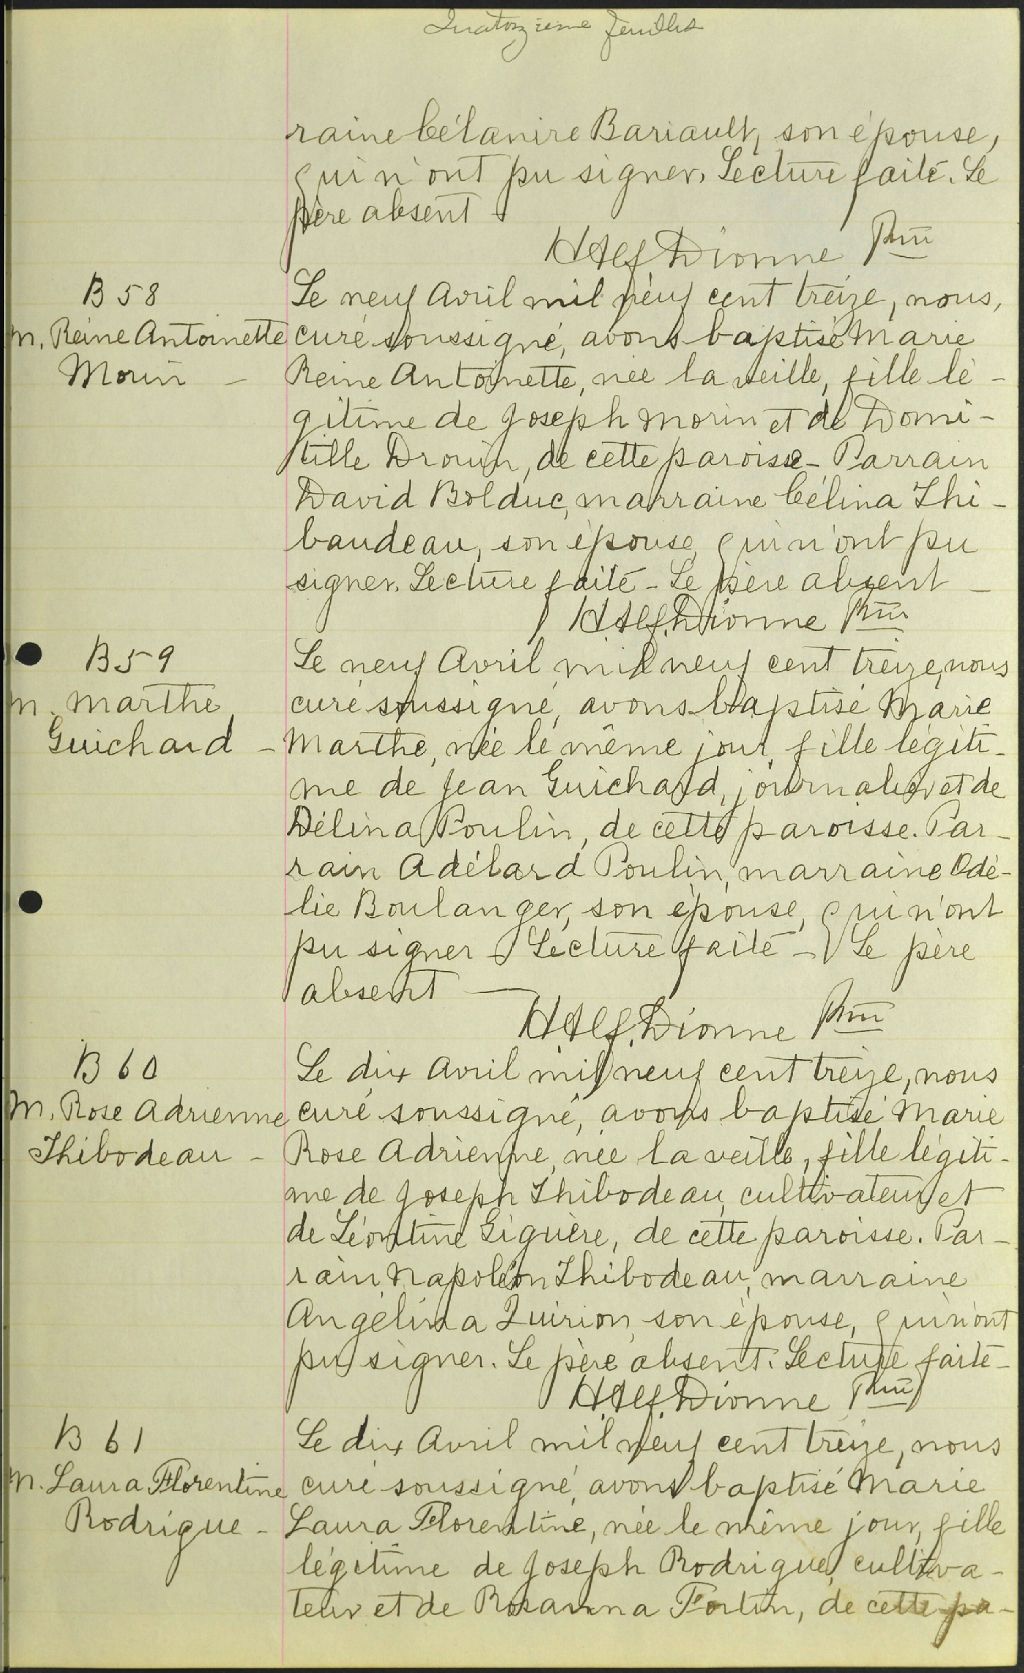 Quatorzième feuillet
raine Célanire Bariault, son épouse,
qui n'ont pu signer. Lecture faite. Le
père absent
H Alf. Dionne Ptre
B 58
M. Reine Antoinette
Morin -
Le neuf Avril mil neuf cent treize, nous,
curé soussigné, avons baptisé Marie
Reine Antoinette, née la veille, fille lé-
gitime de Joseph Morin et de Domi-
tille Drouin, de cette paroisse - Parrain
David Bolduc, marraine Célina Thi-
baudeau, son épouse, qui n'ont pu
signer. Lecture faite - Le père absent -
H Alf. Dionne Ptre
B 59
M. Marthe
Guichard -
Le neuf Avril mil neuf cent treize, nous
curé soussigné, avons baptisé Marie
Marthe, née le même jour, fille légiti-
me de Jean Guichard, journalier et de
Délina Poulin, de cette paroisse. Par-
rain Adélard Poulin, marraine Odé-
lie Boulanger, son épouse, qui n'ont
pu signer - Lecture faite - Le père
absent -
H Alf. Dionne Ptre
B 60
M. Rose Adrienne
Thibodeau -
Le dix Avril mil neuf cent treize, nous
curé soussigné, avons baptisé Marie
Rose Adrienne, née la veille, fille légiti-
me de Joseph Thibodeau, cultivateur et
de Léontine Giguère, de cette paroisse. Par-
rain Napoléon Thibodeau, marraine
Angélina Quirion, son épouse, qui n'ont
pu signer. Le père absent. Lecture faite -
H. Alf. Dionne Ptre
B 61
M. Laura Florentine
Rodrigue -
Le dix Avril mil neuf cent treize, nous
curé soussigné, avons baptisé Marie
Laura Florentine, née le même jour, fille
légitime de Joseph Rodrigue, cultiva-
teur et de Rosanna Fortin, de cette pa-